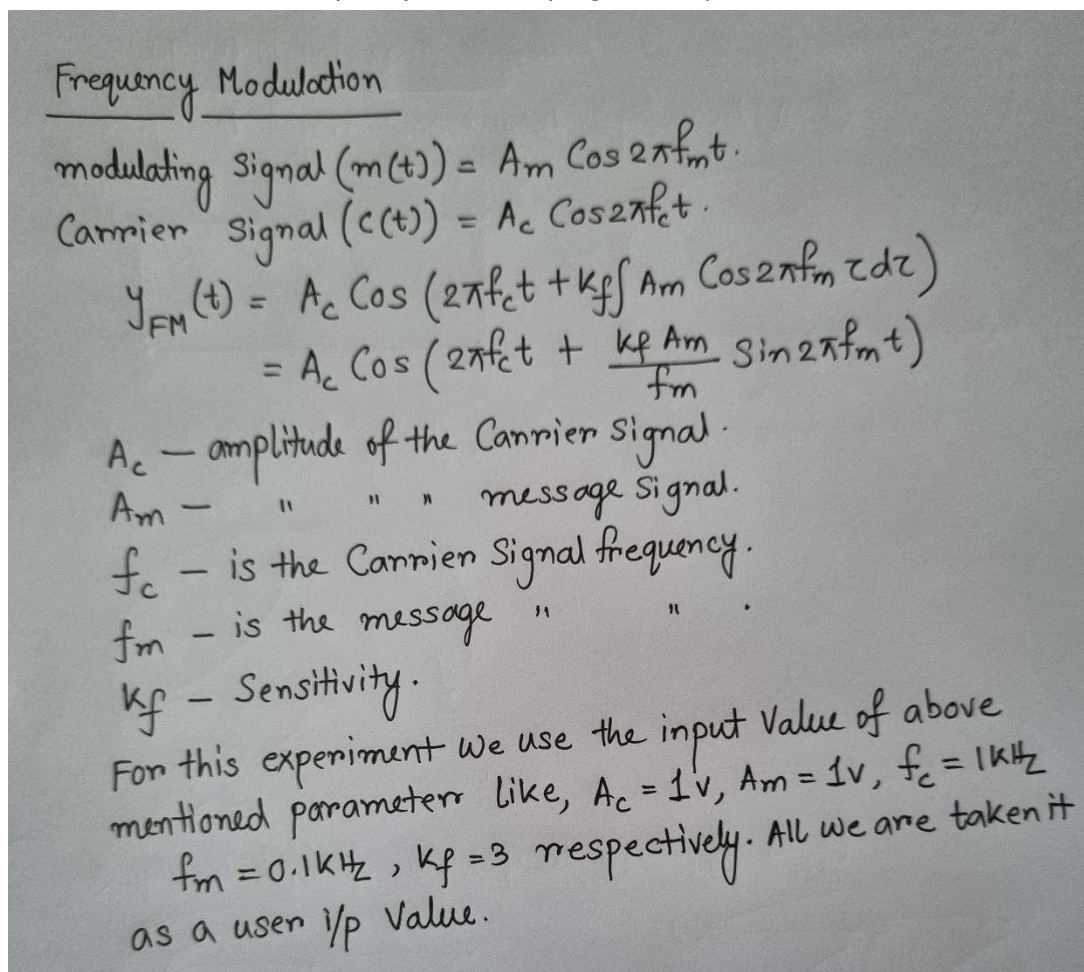 Frequency Modulation
modulating Signal (m(t)) = Am Cos 2πfmt.
Carrier Signal (c(t)) = Ac Cos2πfct.
yFM(t) = Ac Cos (2πfct + Kf∫ Am Cos2πfm τdτ)
= Ac Cos (2πfct + kf Am / fm Sin2πfmt)
Ac — amplitude of the Carrier Signal.
Am — " " " message Signal.
fc — is the Carrier Signal frequency.
fm — is the message " " .
Kf — Sensitivity.
For this experiment we use the input Value of above
mentioned parameterr like, Ac = 1v, Am = 1v, fc = 1KHz
fm = 0.1KHz, Kf = 3 respectively. All we are taken it
as a user i/p Value.